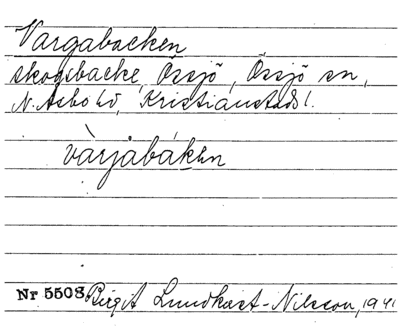 Vargabacken
skogsbacke, Örsjö, Örsjö sn,
N. Åsbo hd, Kristianstads l.
vàrjabáken
Nr 5508 Birgit Lundkvist-Nilsson, 1941